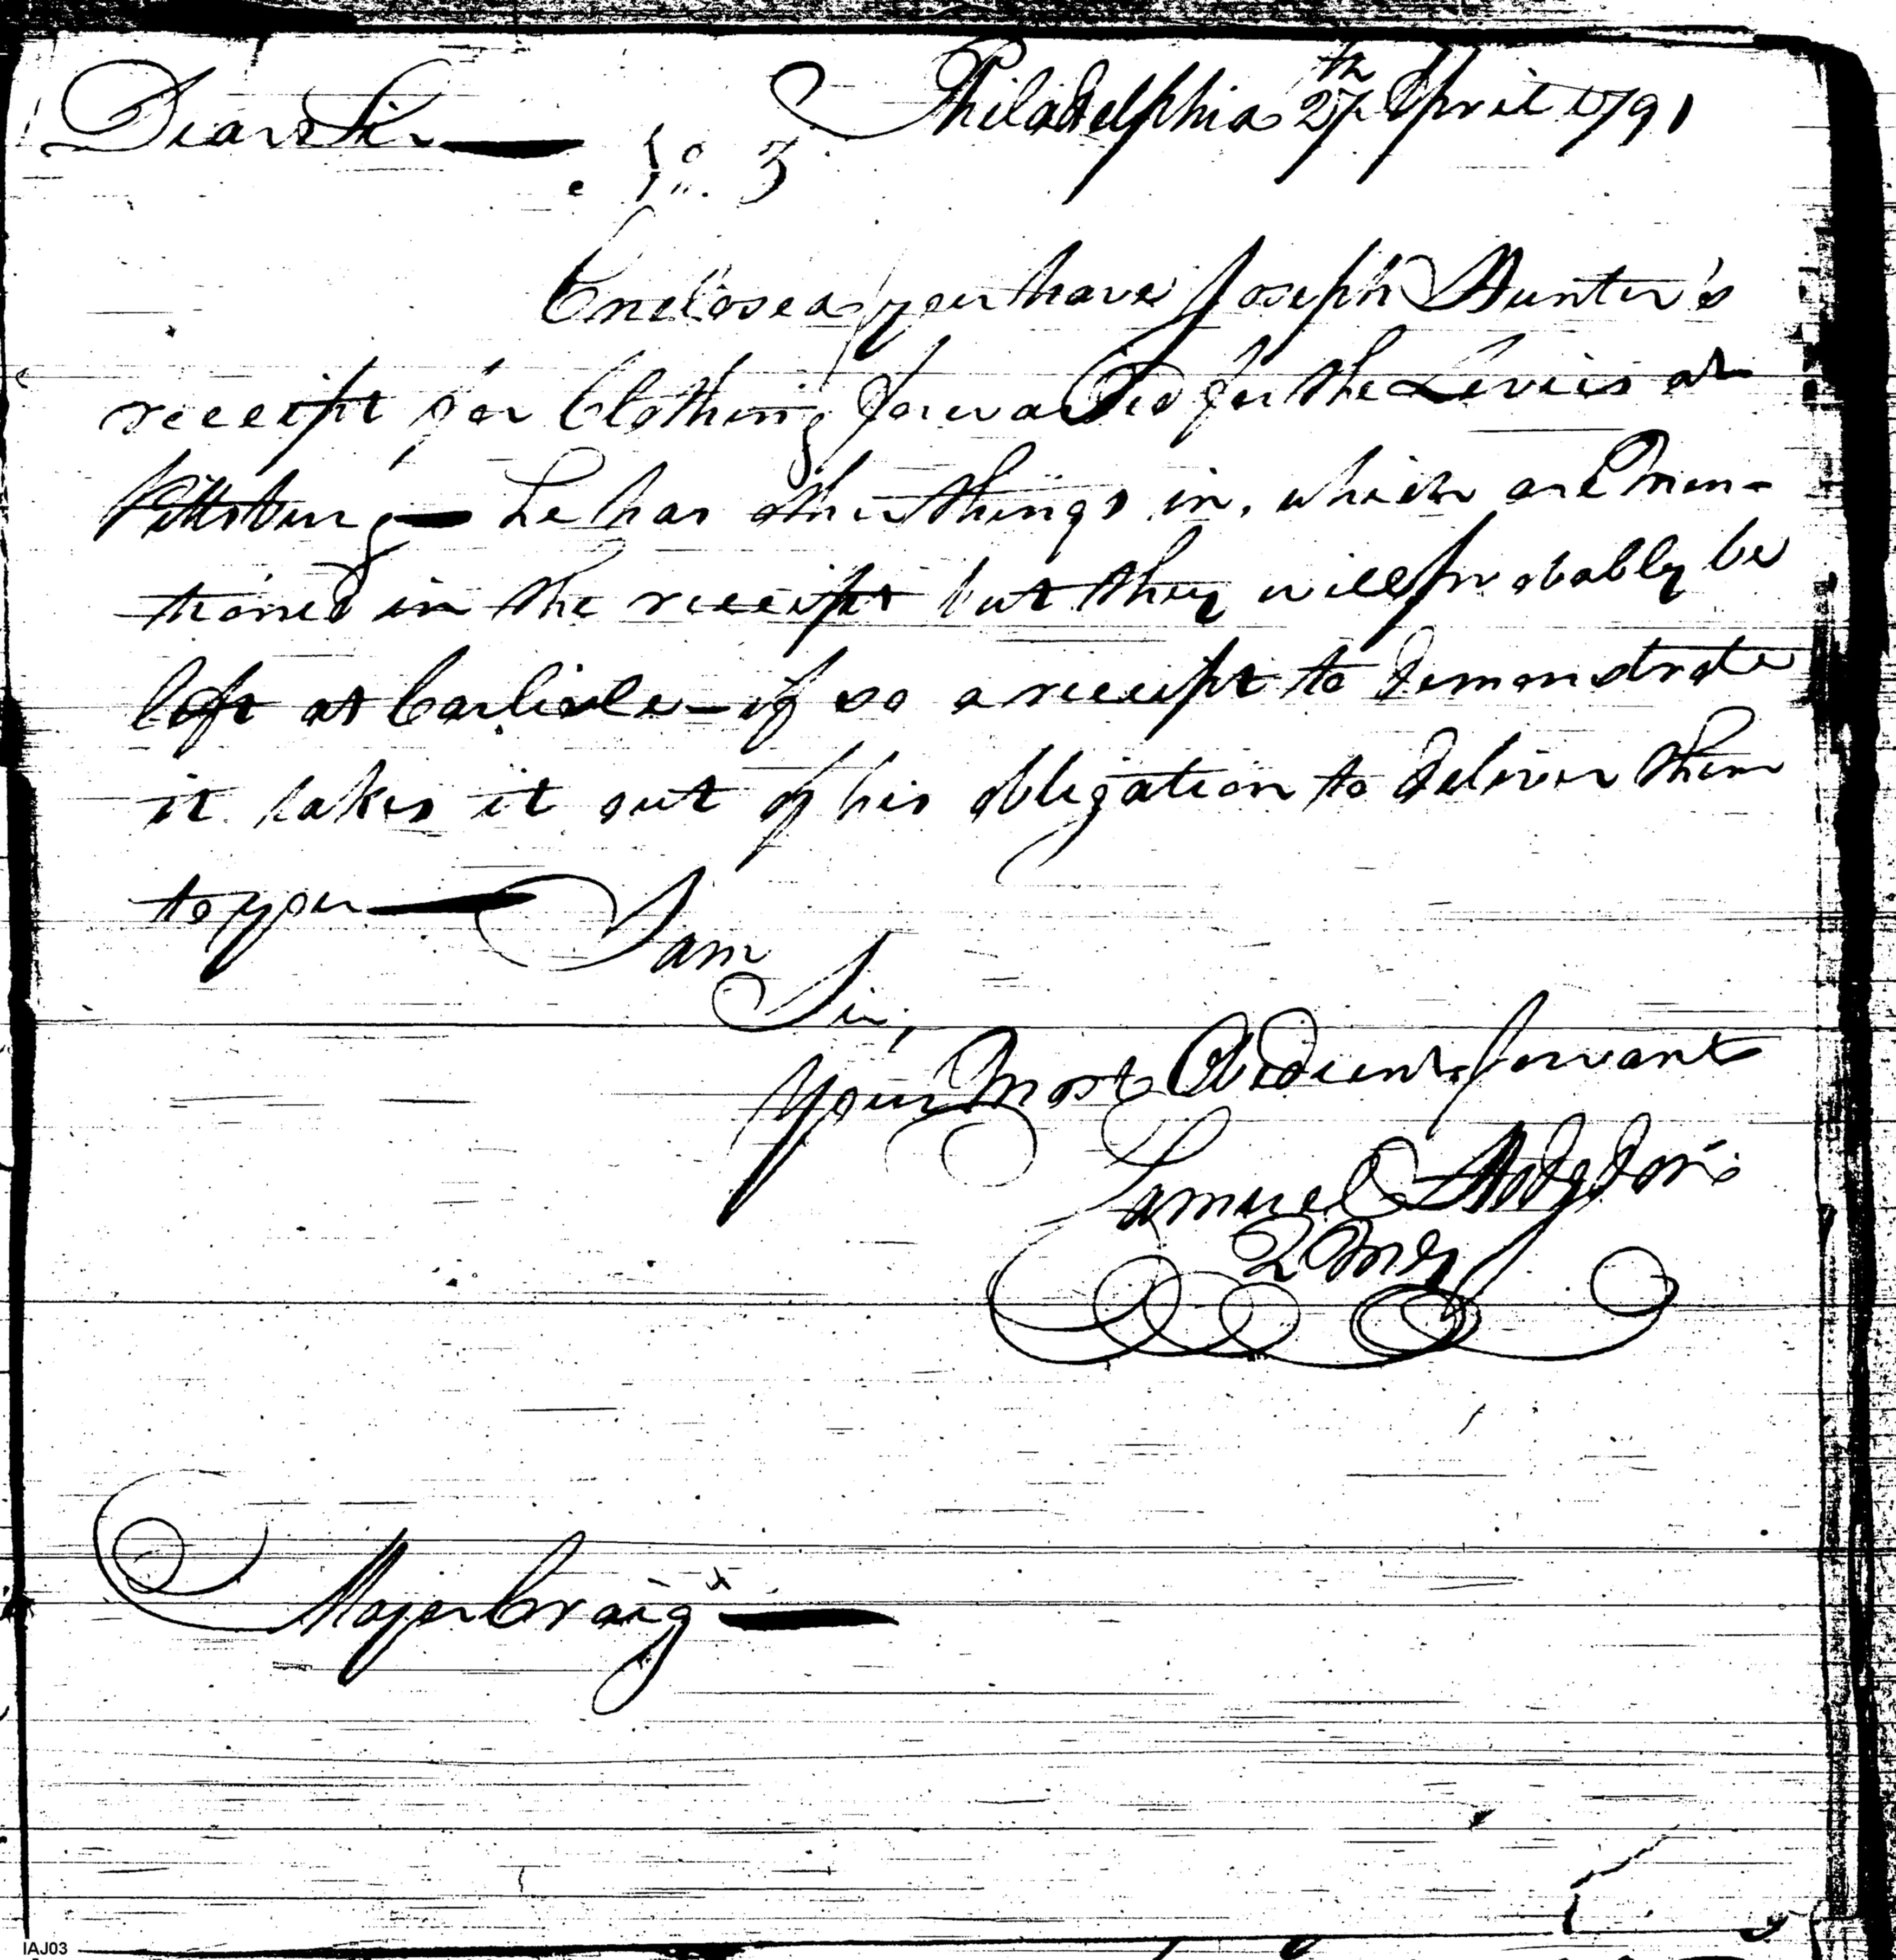 Philadelphia 27th April 1791
Dear Sir —
No. 3
Enclosed you have Joseph Hunter's
receipt for Clothing forwarded for the Levies at
Pittsburg — he has other things in, which are men-
tioned in the receipt but they will probably be
left at Carlisle — if so a receipt to demonstrate
it takes it out of his obligation to deliver them
to you — I am
Sir,
Your Most Obedient Servant
Samuel Hodgdon
QMG
Major Craig —
IAJ03